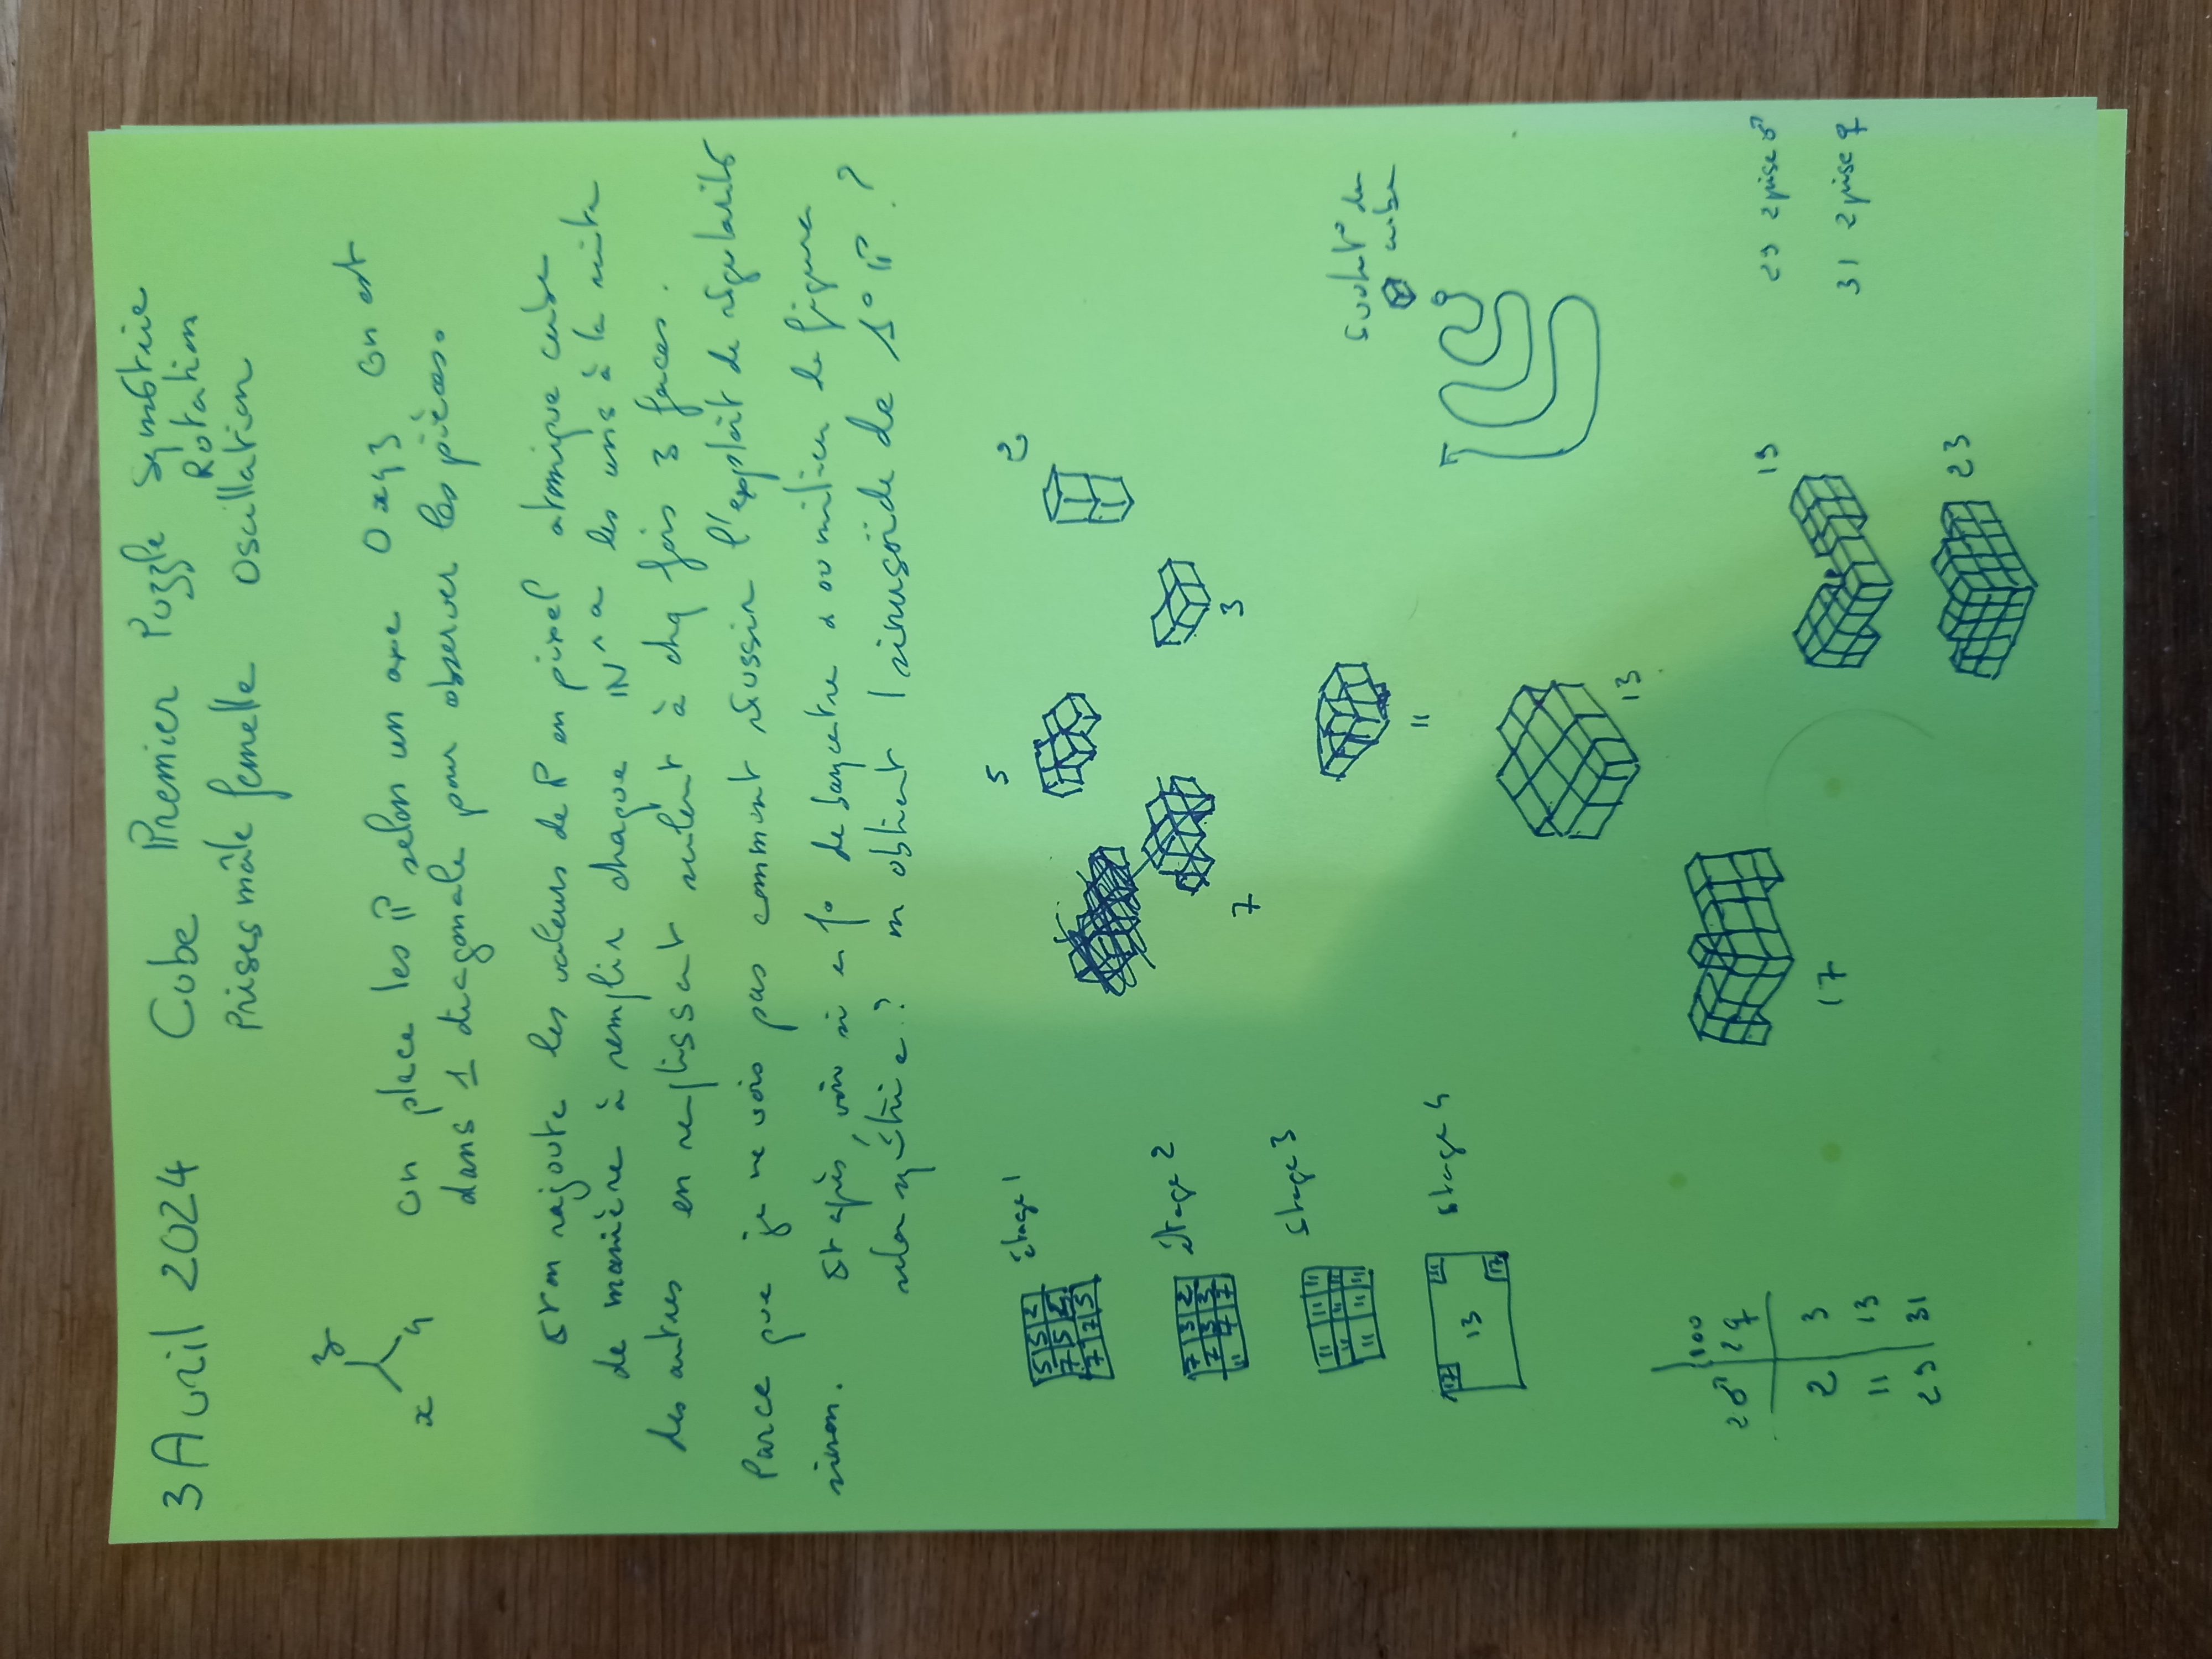 3 Avril 2024 Cube Premier Puzzle Symétrie
Rotation
Prises mâle femelle Oscillation
z
x y
on place les ℙ selon un axe Oxyz on est
dans 1 diagonale pour observer les pièces.
Et on rajoute les valeurs de ℙ en pixel atomique cube
de manière à remplir chaque ℕ^a les uns à la suite
des autres en remplissant seulent à chq fois 3 faces.
Parce que je ne vois pas comment réussir l'exploit de régularité
sinon. Et après, voir si en f° de barycentre ou milieu de figure
selon symétrie ? on obtient 1 sinusoïde de ℙ ?
5 5 2
7 5 5
7 7 5
étage 1
5
2
7 3 2
7 3 3
11 7 7
étage 2
7
3
11 11 11
11 11 11
11 11 11
Etage 3
11
17 11
13
17
Etage 4
Evolut° du
cube
13
100
2♂ 2♀
2 3
11 13
29 31
17
19
29 2 prise ♂
31 2 prise ♀
23